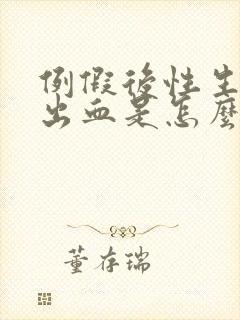 例假後性生
出血是怎麼
董存瑞